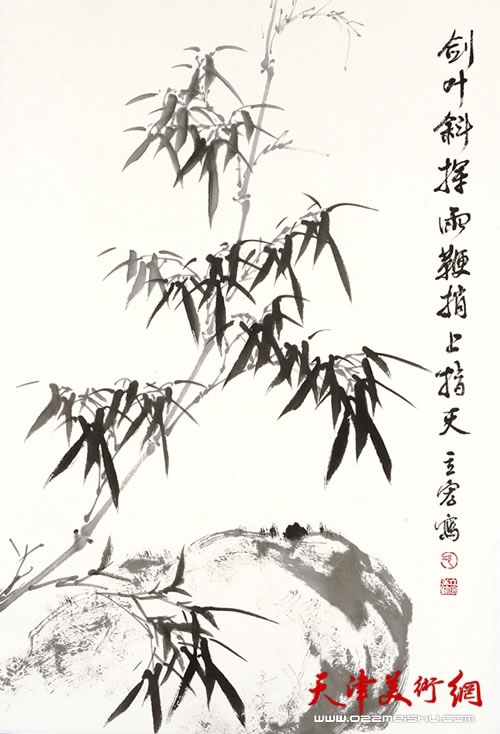 剑叶斜挥雨鞭捎上指天
立宏写
天津美術網
www.022meishu.com